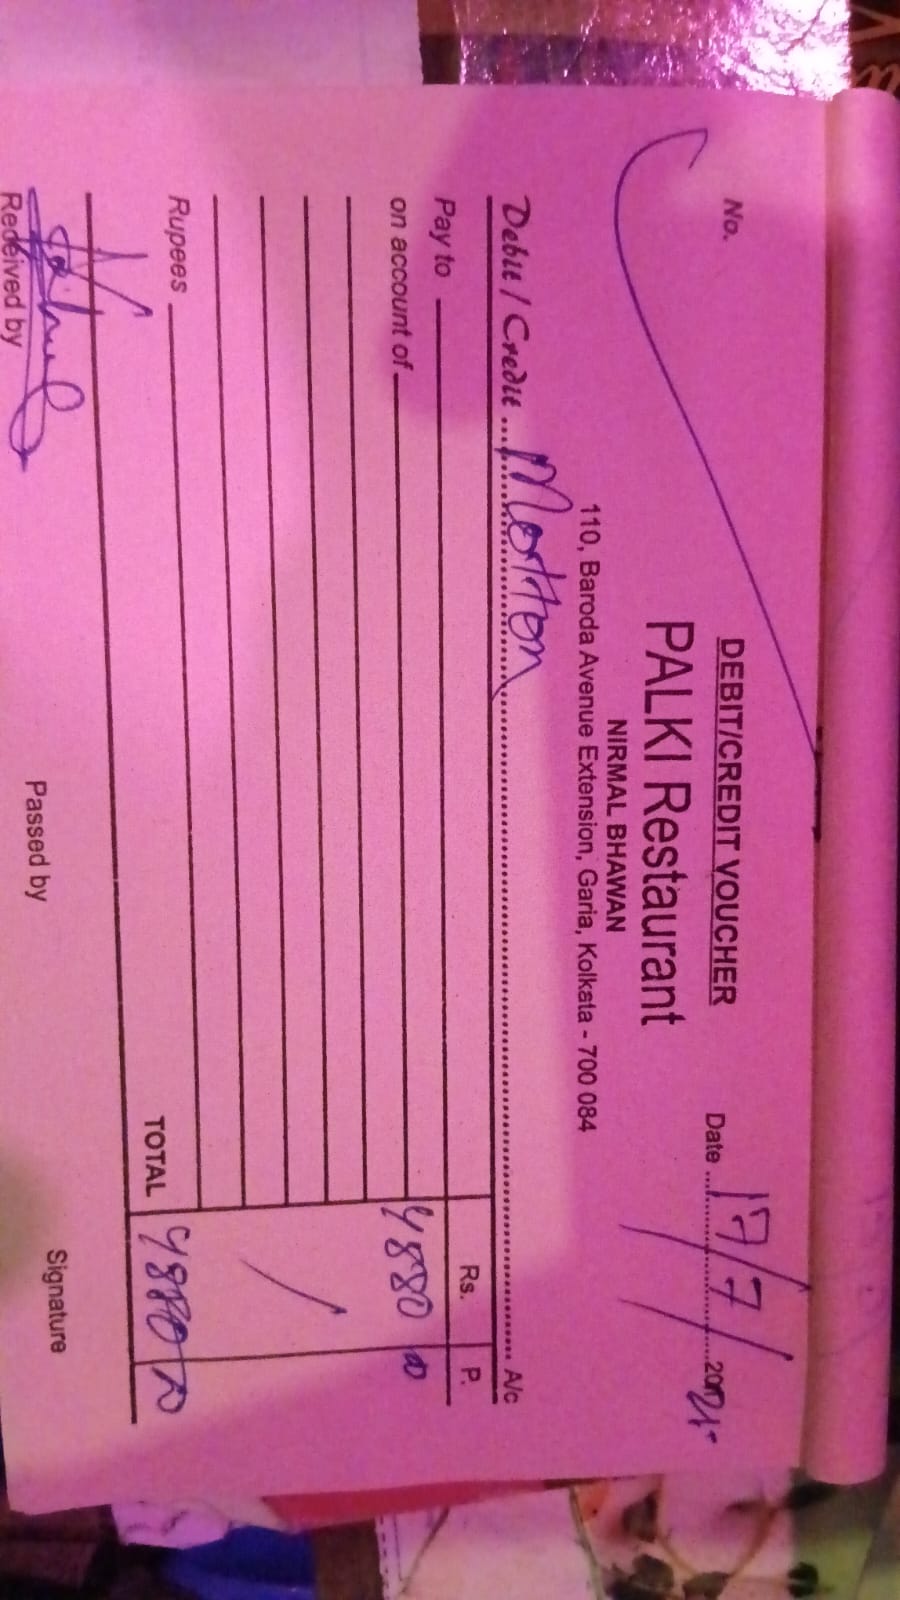 DEBIT/CREDIT VOUCHER
No.
Date 17/7/2021
PALKI Restaurant
NIRMAL BHAWAN
110, Baroda Avenue Extension, Garia, Kolkata - 700 084
Debit / Credit Mortton A/c
Rs. P.
Pay to
on account of 4880 00
Rupees
TOTAL 4880
Received by Passed by Signature